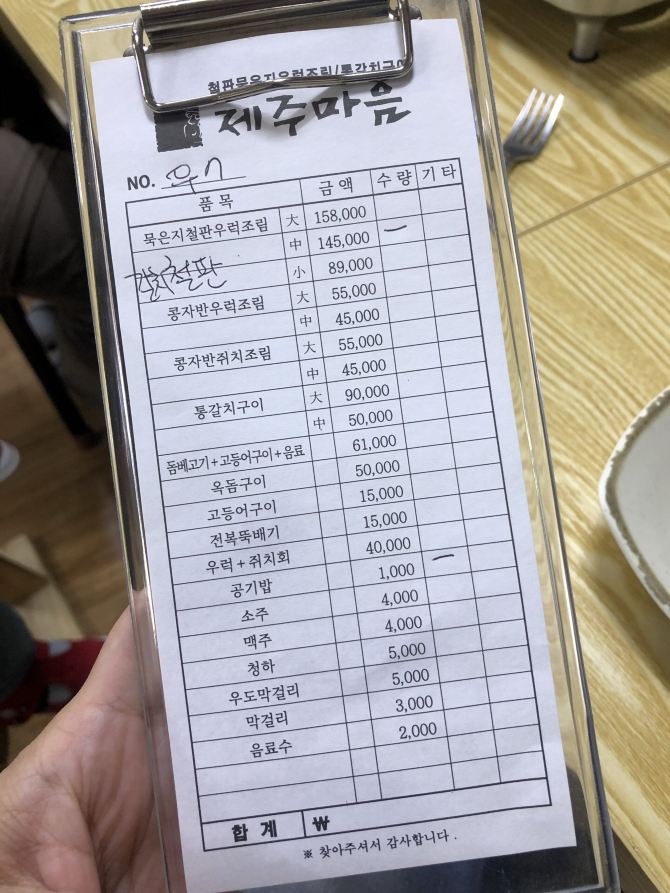 철판묵은지우럭조림/통갈치구이
제주마음
NO. 우7
품 목 금 액 수 량 기 타
묵은지철판우럭조림 大 158,000
中 145,000 一
小 89,000
콩자반우럭조림 大 55,000
中 45,000
콩자반쥐치조림 大 55,000
中 45,000
통갈치구이 大 90,000
中 50,000
돔베고기+고등어구이+음료 61,000
옥돔구이 50,000
고등어구이 15,000
전복뚝배기 15,000
우럭+쥐치회 40,000
공기밥 1,000 一
소주 4,000
맥주 4,000
청하 5,000
우도막걸리 5,000
막걸리 3,000
음료수 2,000
합 계 ₩
※ 찾아주셔서 감사합니다.